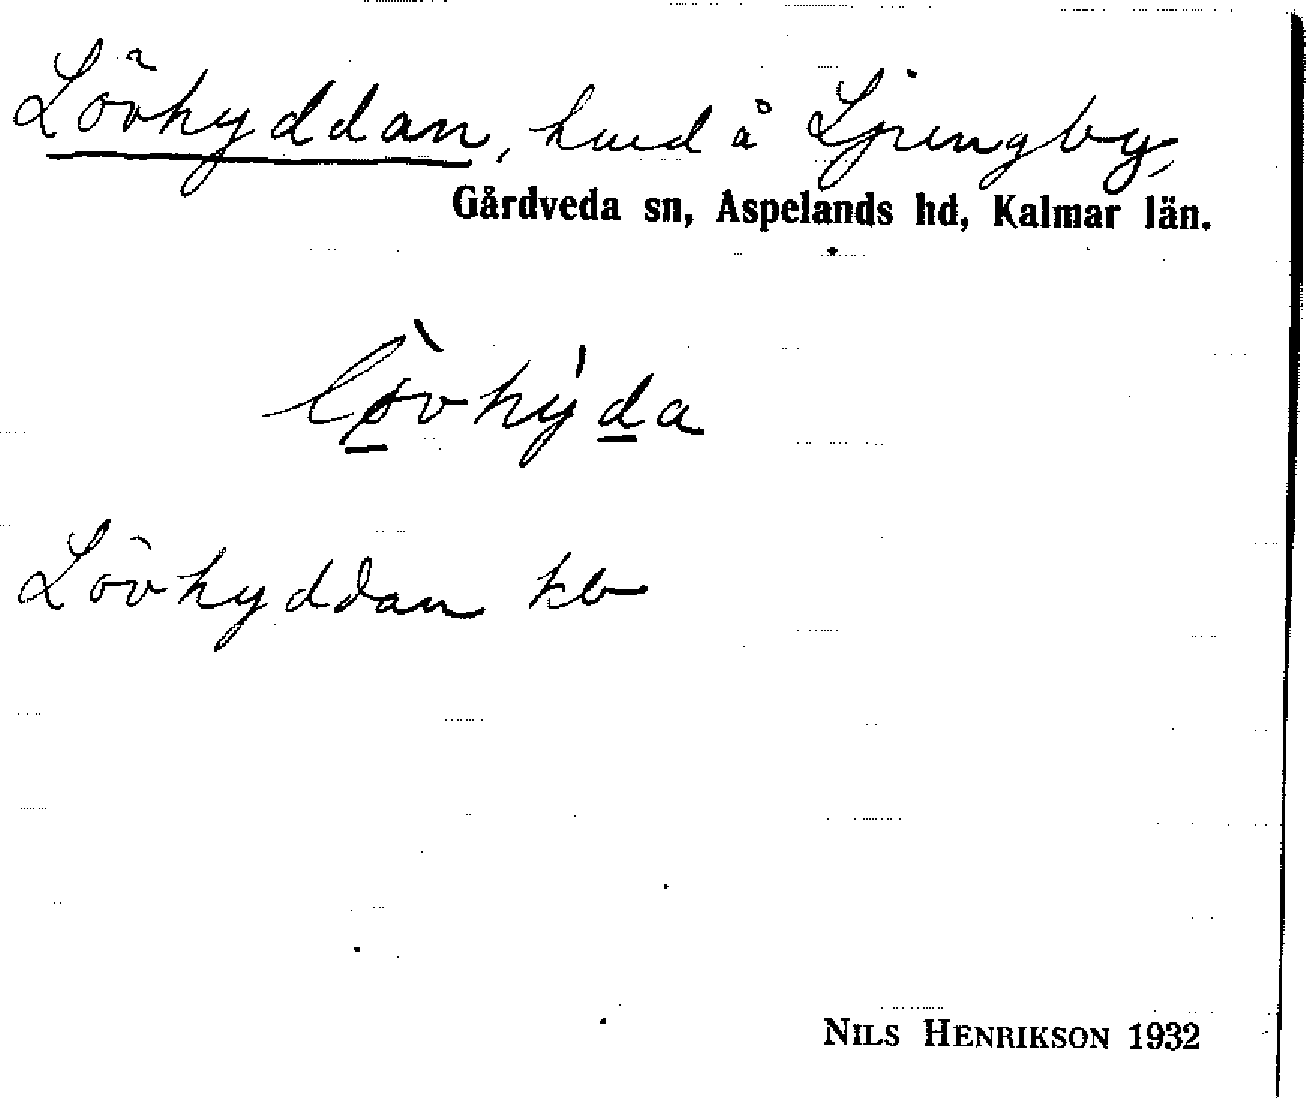 Lövhyddan, lund å Ljungby,
Gårdveda sn, Aspelands hd, Kalmar län.
lø̲̀vhy̍d̲a
Lövhyddan kb
NILS HENRIKSON 1932